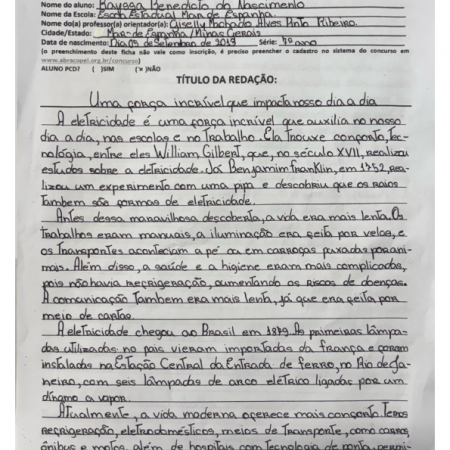 Nome do aluno: Rayssa Benedicto do Nascimento
Nome da Escola: Escola Estadual Mar de Espanha.
Nome do(a) professor(a) orientador(a): Giselly Machado Alves Pinto Ribeiro.
Cidade/Estado: Mar de Espanha/Minas Gerais
Data de nascimento: Dia 09 de Setembro de 2013 Série: 7º ano
(o preenchimento deste ficha não vale como inscrição, é preciso preencher o cadastro no sistema do concurso em
www.abracopel.org.br/concurso)
ALUNO PCD? ( )SIM ( )NÃO
TÍTULO DA REDAÇÃO:
Uma força incrível que impacta nosso dia a dia
A eletricidade é uma força incrível que auxilia no nosso
dia a dia, nas escolas e no trabalho. Ela trouxe conforto, tec-
nológia, entre eles William Gilbert, que, no século XVII, realizou
estudos sobre a eletricidade. Já Benjamim Franklin, em 1752, rea-
lizou um experimento com uma pipa e descobriu que os raios
Tambem são formas de eletricidade.
Antes dessa maravilhosa descoberta, a vida era mais lenta. Os
Trabalhos eram manuais, a iluminação era feita por velas, e
os Transportes aconteciam a pé ou em carroças puxadas por ani-
mais. Além disso, a saúde e a higiene eram mais complicadas,
pois não havia refrigeração, aumentando os riscos de doenças.
A comunicação Tambem era mais lenta, já que era feita por
meio de cartas.
A eletricidade chegou ao Brasil em 1879. As primeiras lâmpa-
das utilizadas no país vieram importadas da frança e foram
instaladas na Estação Central da Entrada de ferro, no Rio de Ja-
neiro, com seis lâmpadas de arco elétrico ligadas por um
dínamo a vapor.
Atualmente, a vida moderna oferece mais conforto. Temos
refrigeração, eletrodomésticos, meios de Transporte, como carros,
ônibus e motos, além de hospitais com Tecnologia de ponta, permi-